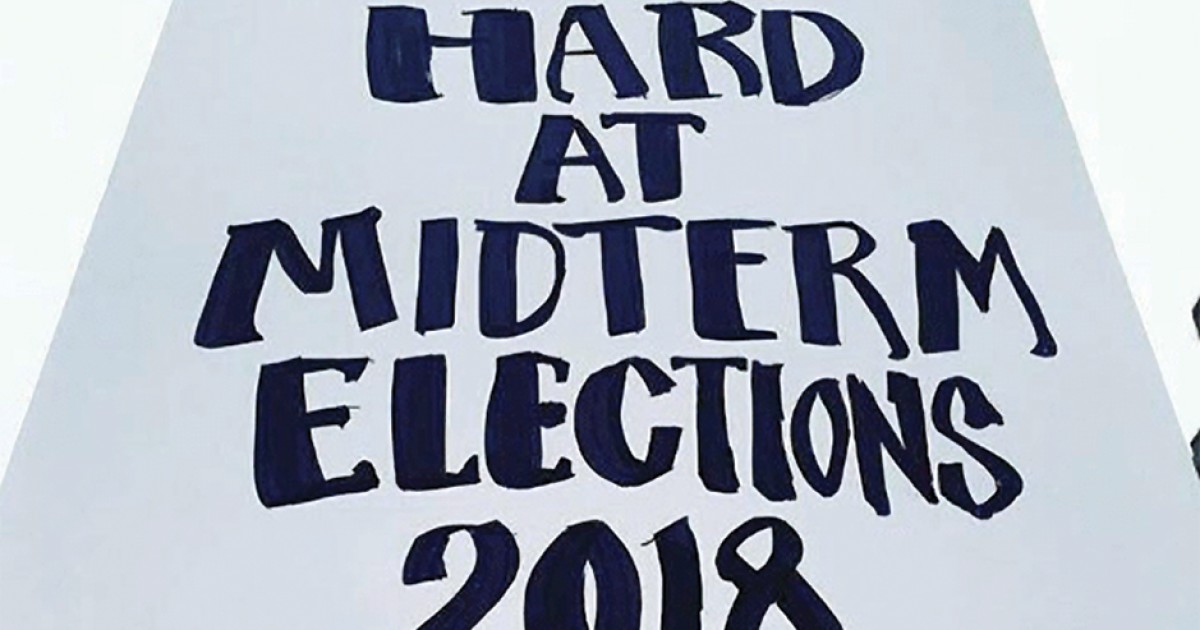 HARD
AT
MIDTERM
ELECTIONS
2018